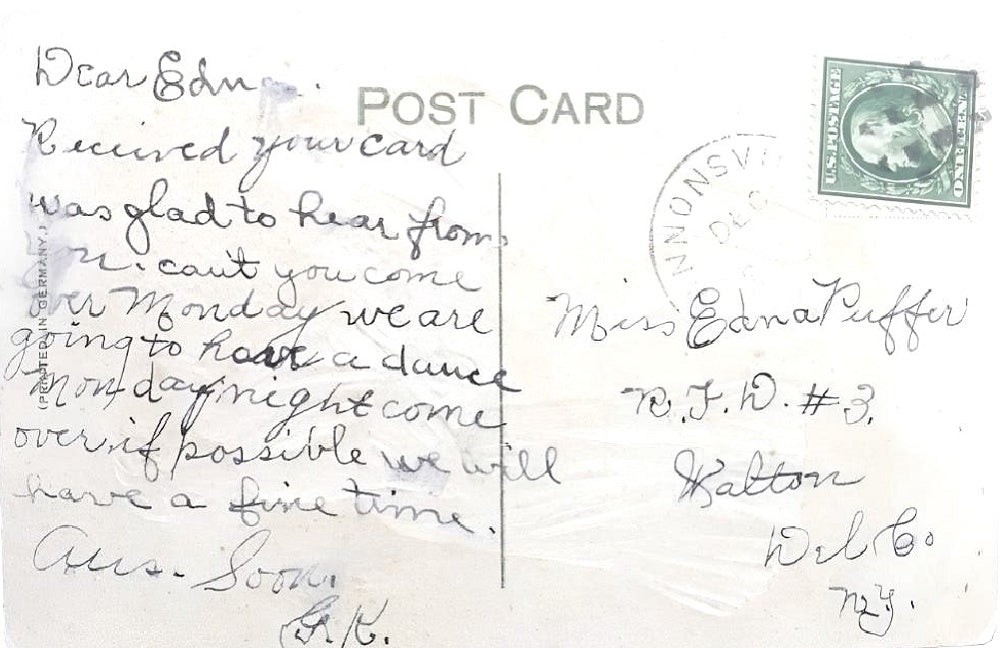 POST CARD
Dear Edna.
Received your card
was glad to hear from
you. can't you come
over Monday we are
going to have a dance
Monday night come
over if possible we will
have a fine time.
Ans. Soon.
G.K.
(PRINTED IN GERMANY.)
U.S. POSTAGE
ONE CENT
NNONSVI
DEC
Miss Edna Puffer
R.F.D. #3.
Walton
Del Co
N.Y.